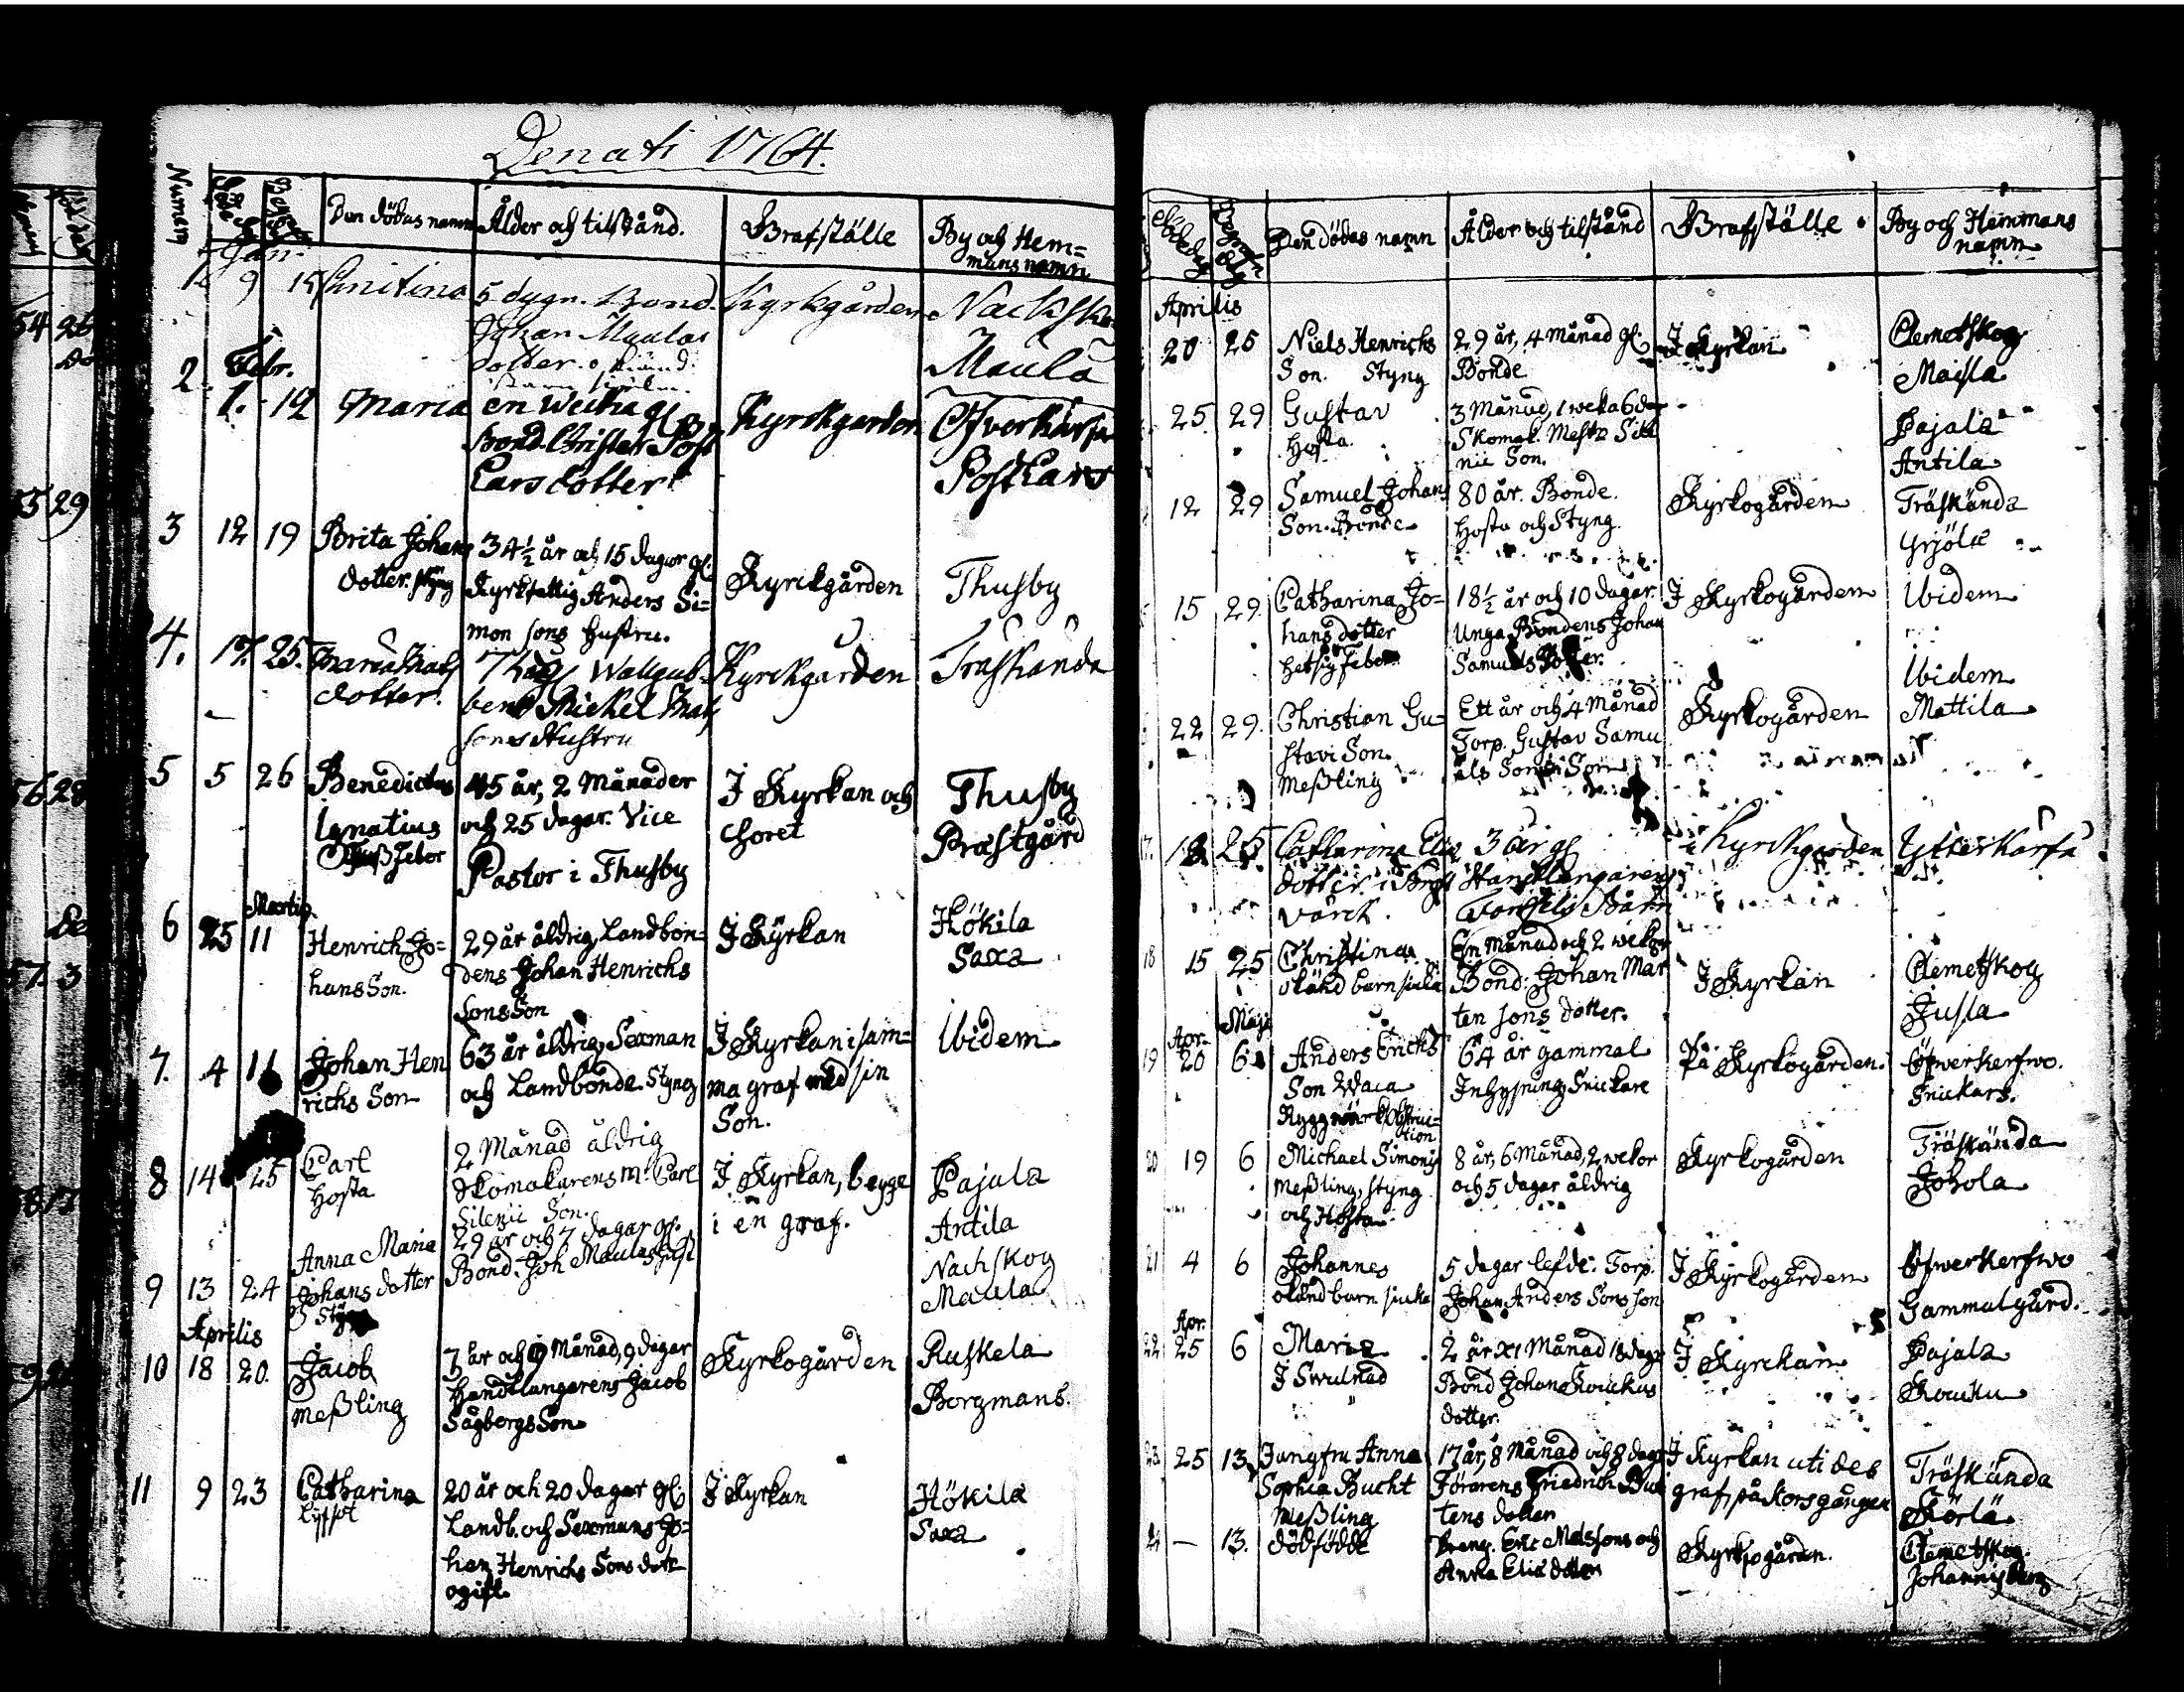 Denati 1764.
Numern
Den dödas namn
Ålder och tilstånd.
Grafställe
By och Hem=
mans namn
Jan.
1 9 15 Christina 5 dygn. Bond. Kyrkgården Nackskog
Johan Maulas
dotter. okänd
Maula
2 Febr.
1. 12 Maria en Wecka gl. Kyrckgården Öfverkärfva
Bond. Christer Post
Lars dotter
Post Lars
3 12 19 Brita Johans 34½ år och 15 dagar gl. Kyrckgården Thusby
dotter. styng Kyrkfattig Anders Si=
mon sons hustru.
4. 17. 25. Maria Mats Kyrckgården Träskända
dotter.
Michel Mats
sons Hustru
5 5 26 Benedictus 45 år, 2 Månader I Kyrkan och Thusby
Ignatius och 25 dagar. Vice Choret Præstgård
Feber Pastor i Thusby
Martii
6 25 11 Henrich Jo= 29 år åldrig, Landbon= I Kyrkan Hökila
hans Son. dens Johan Henrichs Saxa
Sons Son
7. 4 11 Johan Hen 63 år åldrig, Sexman I Kyrkan i sam= Ibidem
richs Son och Landbonde. Styng ma graf med sin
Son.
8 14 25 Carl 2 Månad åldrig I Kyrkan, begge Pajala
Hosta Skomakarens Mr. Carl i en graf. Antila
Silenii Son.
9 13 24 Anna Maria 29 år och 7 dagar gl. Nachskog
Johans dotter Bond. Joh Maulas Hust Maula
Styng
Aprilis
10 18 20. Jacob 3 år och 9 Månad, 9 dagar Kyrkogården Ruskela
Meßling Handtlangarens Jacob Borgmans.
Sågbergs Son
11 9 23 Catharina 20 år och 20 dagar gl. I Kyrkan Hökila
Landb. och Sexmans Jo= Saxa
han Henrichs Sons dott
ogift.
Den dödas namn
Ålder och tilstånd
Grafställe
By och Hemmans
namn
Aprilis
20 25 Niels Henrichs 29 år, 4 Månad gl. I Kyrkan Clemetskog
Son. Styng Bonde Maisla
25. 29 Gustav 3 Månad, 1 weka 6 dag Pajala
Hosta. Skomak. Mestr Sile Antila
nii Son.
12 29 Samuel Johans 80 år. Bonde. Kyrkogården Träskända
Son. Bonde Hosta och Styng. Gjöls
15 29. Catharina Jo= 18½ år och 10 dagar. I Kyrkogården Ibidem
hans dotter Unga Bondens Johan
Hetsig feber Samuels Dotter.
Ibidem
22 29. Christian Gu= Ett år och 4 Månad Kyrkogården Mattila
stavi Son. Torp. Gustav Samu
Meßling els Sons Son
18 25 Catharina Elia 3 år gl Kyrckgården Ytterkärfva
dotter i
värck. Handtlangaren
Barn
18 15 25 Christina En Månad och 2 wekor I Kyrkan Clemetskog
okänd barn siuka Bond. Johan Mar Jusla
ten sons dotter.
Apr. Maji
19 20 6 Anders Erichs 64 år gammal På Kyrkogården. Öfwerkerfwo.
Son Waca Inhysning Snickare Snickars.
Ryggwärck Obstruc=
tion
20 19 6 Michael Simonis 8 år, 6 Månad, 2 wekor Kyrkogården Träskända
Meßling, styng och 5 dagar åldrig Johola
och Hosta
21 4 6 Johannes 5 dagar lefde. Torp. I Kyrkogården Öfwerkerfwo
okänd barn siuka Johan Anders Sons son Gammalgård.
Apr.
22 25 6 Maria 2 år XI Månad 18 dagr I Kyrckan Pajala
I Swulnad Bond Johan Koukus Kouku
dotter.
23. 25 13. Jungfru Anna 17 år, 8 Månad och 8 dagr I Kyrkan uti des Träskända
Sophia Bucht Förarens Friedrich Buc graf, på Storsgången Körlä
Meßling tens dotter
24 — 13. dödfödde Dreng. Eric Matssons och Kyrkogården. Clemetskog
Anna Eliæ dotter Johannisberg